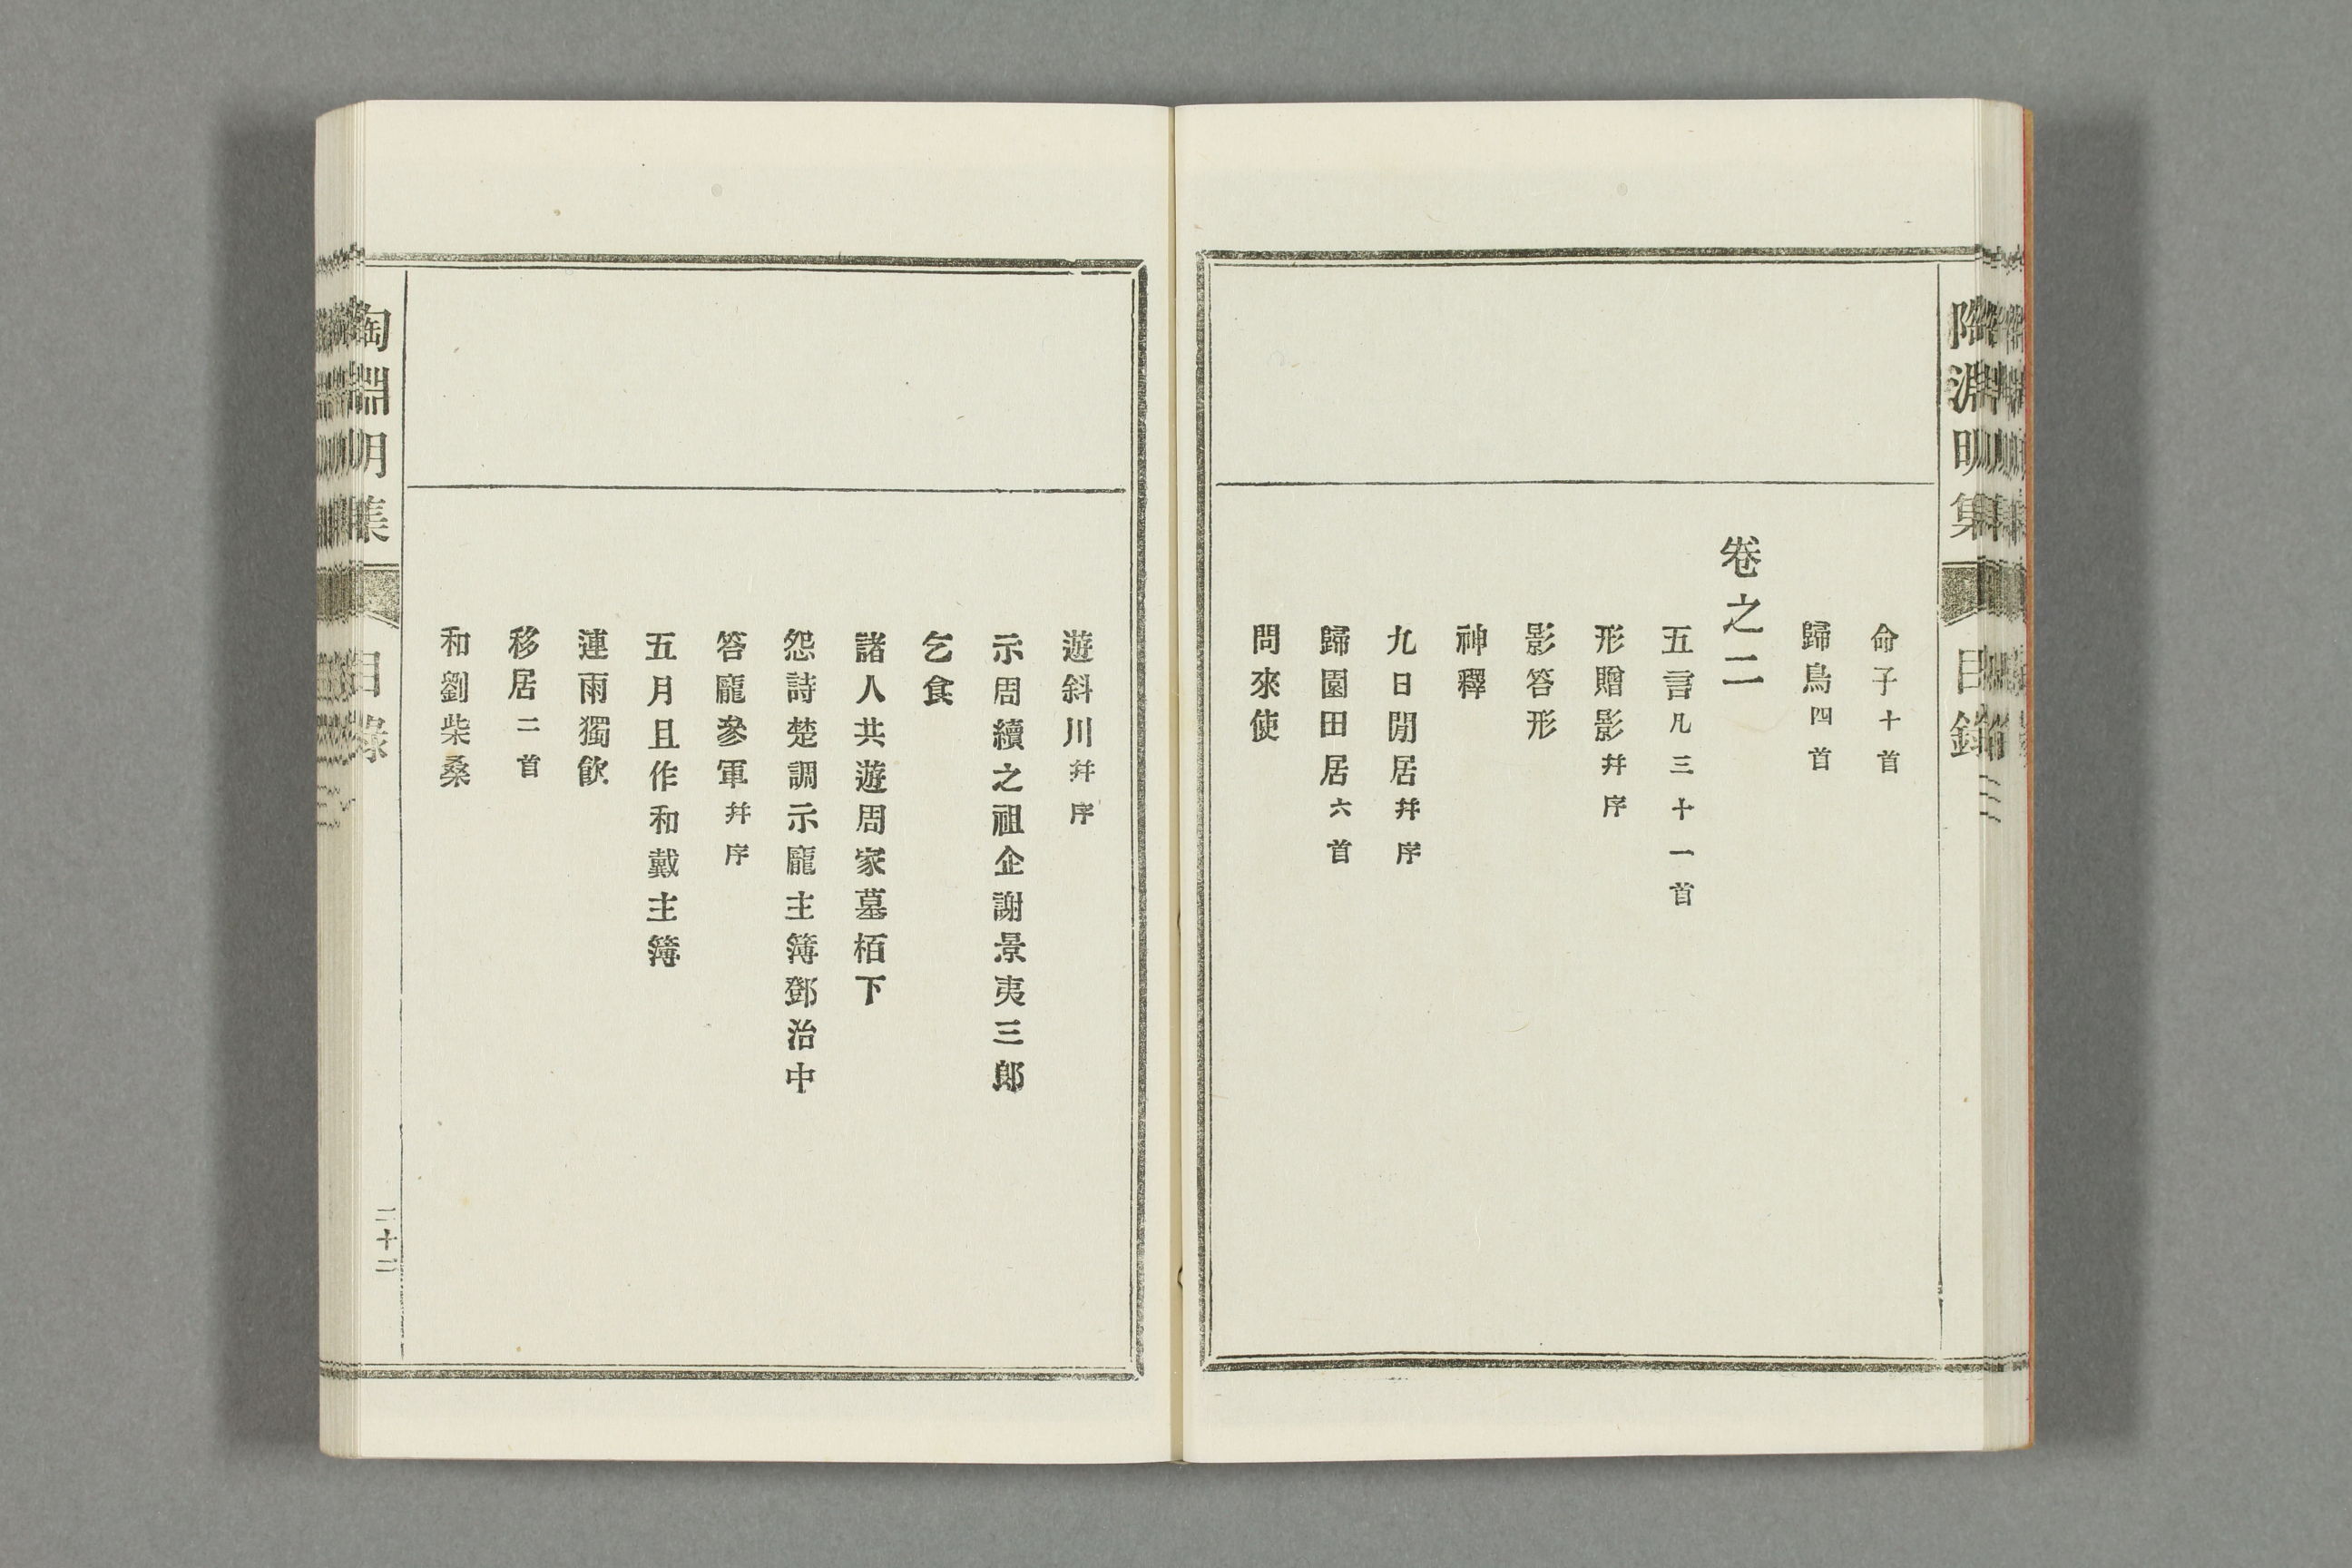 陶淵明集 目錄
命子十首
歸鳥四首
卷之二
五言凡三十一首
形贈影幷序
影答形
神釋
九日閒居幷序
歸園田居六首
問來使
遊斜川幷序
示周續之祖企謝景夷三郎
乞食
諸人共遊周家墓栢下
怨詩楚調示龐主簿鄧治中
答龐參軍幷序
五月且作和戴主簿
連雨獨飮
移居二首
和劉柴桑
陶淵明集 目錄
二十二